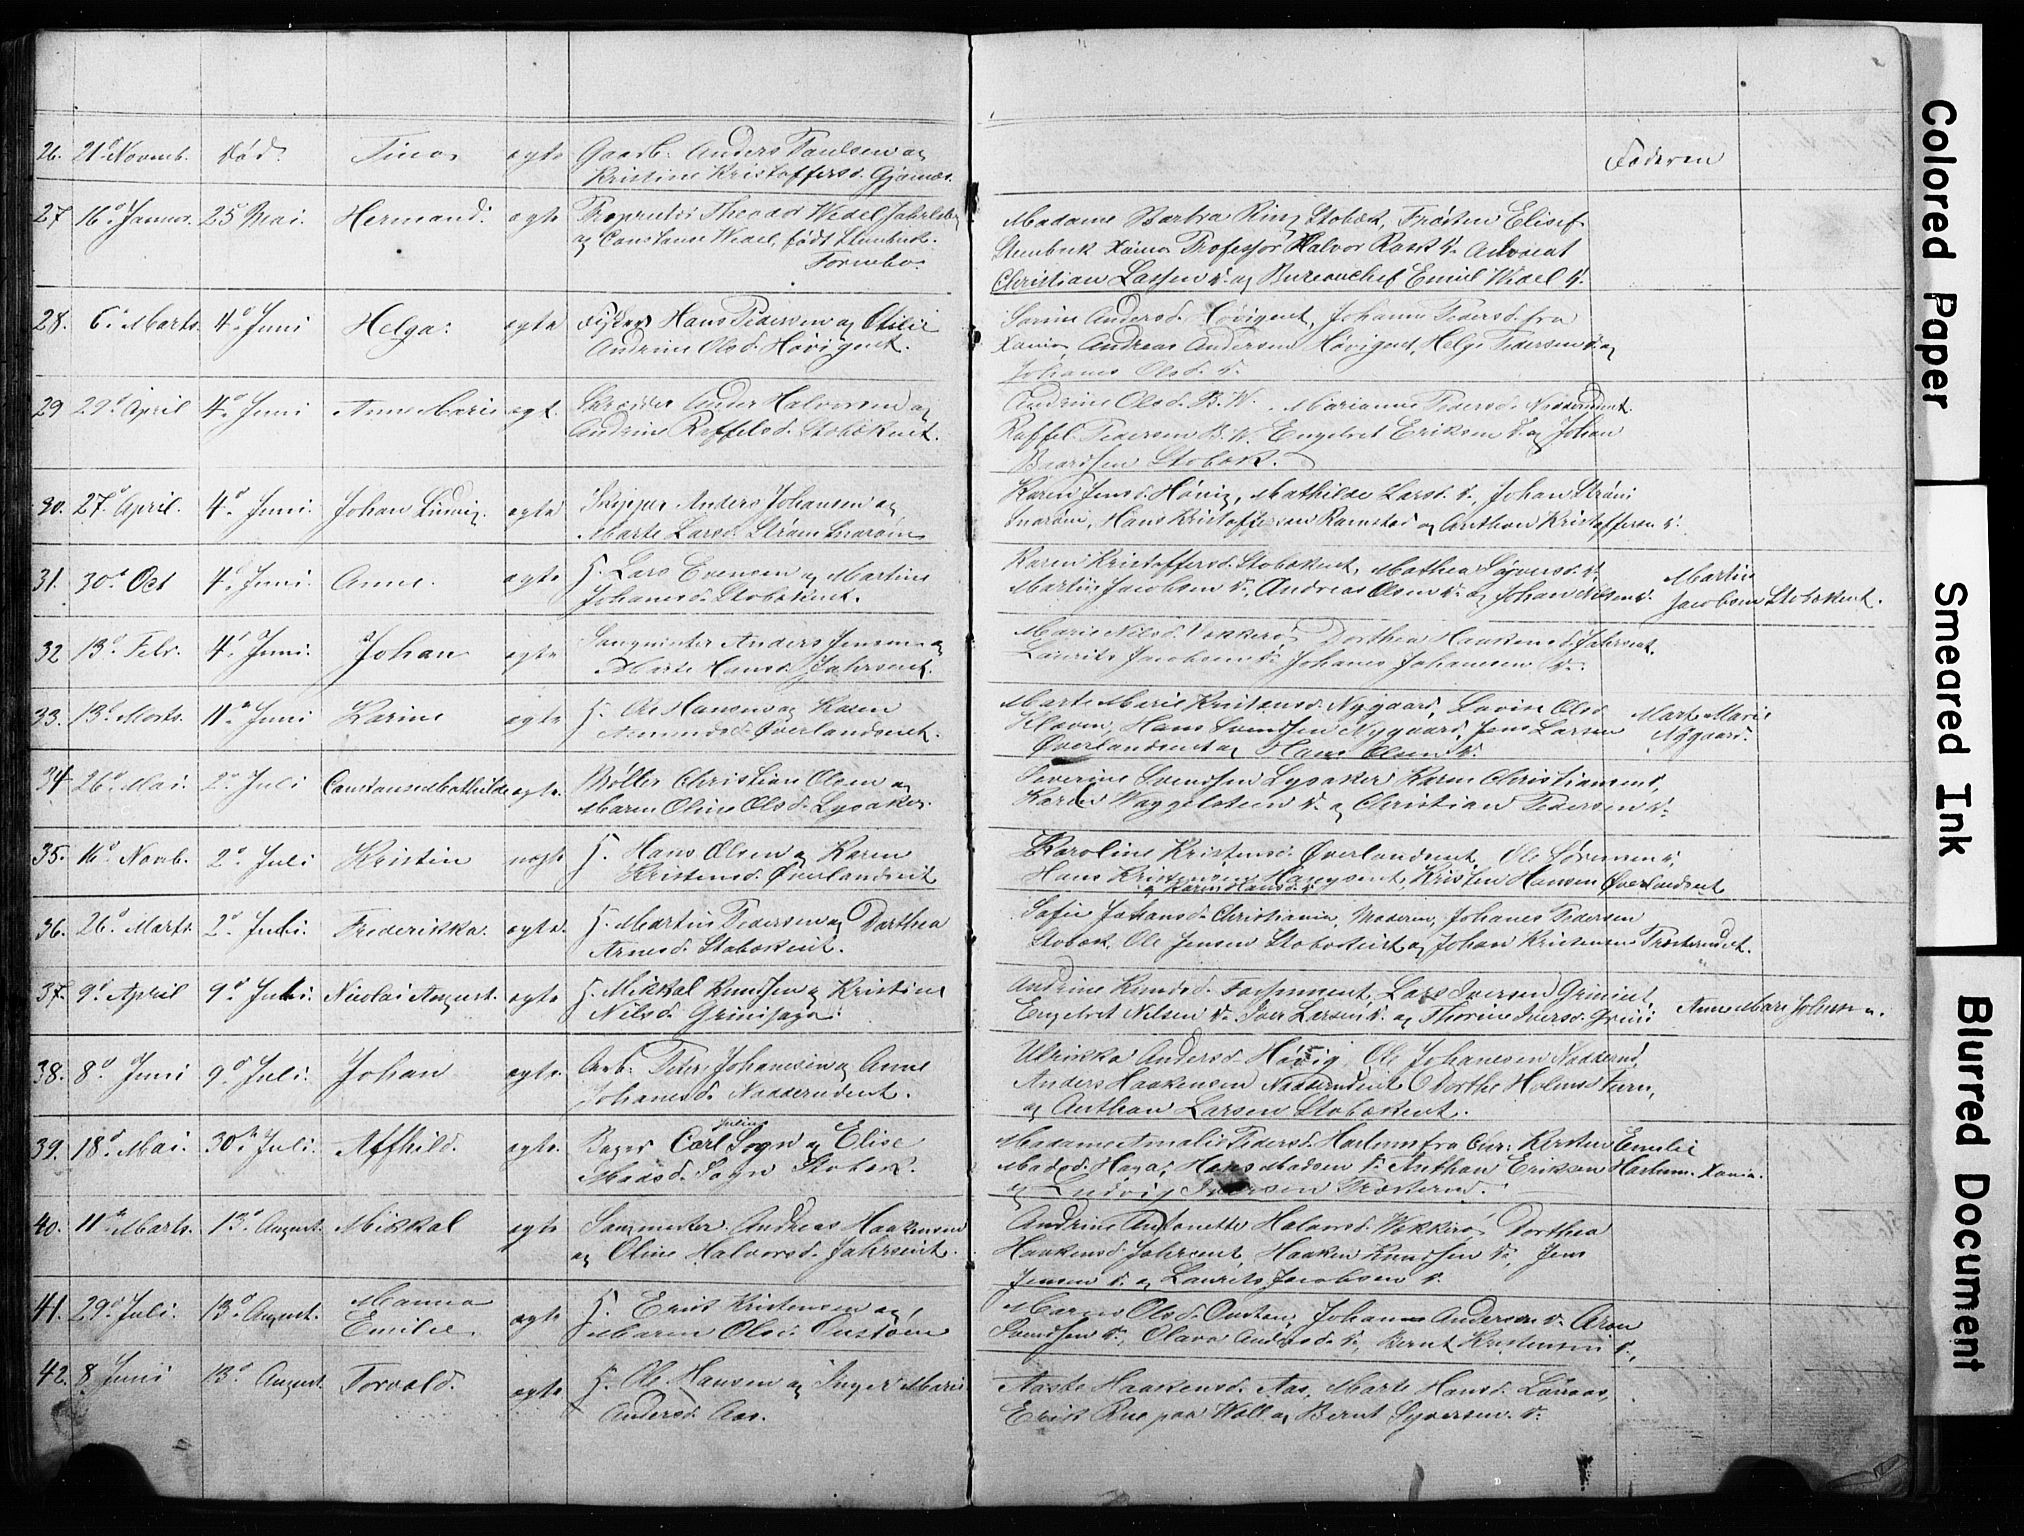 26. 21d Novmb. Død. Tina. ægte Gaarb. Anders Paulsen og
Kristine Kristoffersd. Gjømæs. Faderen
27 16d Januar. 25d Mai. Hermand. ægte Proprietær Theodor Wedel Jahrlsberg
og Constanse Wedel, født Stenbuck.
Fornebo.
Madame Barbra Ring Stobæk, Frøken Elisef
Stenbuck Xania Professor Halvor Rask d. Advocat
Christian Lassen d. og Bureauchef Emil Wedel d.
28. 6d Marts. 4d Juni Helga. ægte Fisker Hans Pedersen og Otilie
Andrine Olsd. Høvigeiet.
Anders d. Høvigeiet, Johanne Pedersd. fra
Xania, Andreas Andersen Høvigeiet, Helge Pedersen d. og
Johanes Olsd. d.
29 29d April 4d Juni Anne Marie ægt. Skrædder Anders Halvorsen og
Andrine Reffelsd. Stobækeiet.
Andrine Olsd. B. W. Marianne Pedersd. Nadderudeiet.
Raffel Pedersen B. W. Engebret Eriksen d. og Johan
Baardsen Stobæk.
30. 27d April. 4d Juni. Johan Ludvig. ægte Skipper Anders Johansen og
Marte Larsd. Strøm Snarøen
Karen Jensd. Høvig, Mathilde Larsd. d. Johan Strøm
Snarøen, Hans Kristoffersen Ramstad og Anthon Kristoffersen d.
31. 30d Oct 4d Juni. Anne. ægte H. Lars Evensen og Martine
Johanesd. Stobækeiet.
Karen Kristoffersd. Stobækeiet, Mathea Syversd. d.
Martin Jacobsen d. Andreas Olsen d. og Johan Nilsen d.
Martin
Jacobsen Stobækeiet.
32 13d Febr. 4d Juni. Johan ægte Saugmester Anders Jensen og
Marte Hansd. Jahrseiet.
Marie Nilsd. Vækkerø, Dorthea Haakensd. Jahrseiet.
Laurits Jacobsen d. Johanes Johansen d.
33. 13d Marts. 11te Juni Karine ægte H. Ole Hansen og Karen
Amundsd. Øverlandseiet.
Marte Marie Kristensd. Nygaard, Lovise Olsd.
Kloven, Hans Svendsen Nygaard, Jens Larsen
Øverlandseiet og Hans Olsen d.
Marte Marie
Nygaard.
34. 26d Mai. 2d Juli Constanse Mathilde ægte. Møller Christian Olsen og
Maren Oline Olsd. Lysaker.
Severine Svendsen Lysaker Karen Christiansen d.
Karl Waggelsteen d. og Christian Pedersen d.
35. 16d Novb. 2d Juli Kristin uægte H. Hans Olsen og Karen
Kristensd. Øverlandseiet
Karoline Kristensd. Øverlandseiet, Ole Sørensen d.
Hans Kristensen Haugseiet, Kristen Hansen Øverlandseiet
og Karen Hansd. d.
36. 26d Marts. 2d Juli. Frederikka. ægte. H. Martin Pedersen og Dorthea
Arnesd. Stobækeiet.
Sofie Johansd. Christiania, Moderen, Johanes Pedersen
Stobæk, Ole Jensen Stobækeiet og Johan Kristensen Presterudeiet.
37. 9d April 9d Juli. Nicolai August. ægte H. Mikkal Knudsen og Kristine
Nilsd. Grinisaga.
Andrine Knudsd. Fossumeiet, Lars Iversen Grinieiet,
Engebret Nilsen d. Iver Larsen d. og Thorine Iversd. Grini
Anne Mari Johnsen.
38. 8d Juni 9d Juli. Johan ægte. Arb. Peter Johannesen og Anne
Johanesd. Nadderudeiet.
Ulrikka Andersd. Høvig, Ole Johanesen Nadderud,
Anders Haakensen Nadderudeiet Dorthe Holms
og Anthon Larsen Stobækeiet.
39. 18d Mai. 30te Juli. Affhild. ægte. Bager Carl Julius Sogn og Elise
Madsd. Sogn Stobæk.
Madame Amalie Pedersd. Hartum fra Chr. Kirsten Emelie
Madsd. Haga, Hans Madsen d. Anthon Eriksen Hartum Xania.
og Ludvig Iversen Præsterud.
40. 11te Marts. 13d August. Mikkal ægte Saugmester Andreas Haakensen
og Oline Halvorsd. Jahrseiet.
Andrine Antonette Halvorsd. Wækkerø, Dorthea
Haakensd. Jahrseiet, Haaken Knudsen d., Jens
Jensen d. og Laurits Jacobsen d.
41. 29d Juli. 13d August. Manna
Emilie. ægte H. Erik Kristensen og
Maren Olsd. Oustøen
Maren Olsd. Oustøen, Johan Andersen d. Aron
Svendsen d., Olava Andersd. d., Bernt Kristensen d.,
42. 8 Juni 13d August. Torvald. ægte H. Ole Hansen og Inger Marie
Andersd. Aas.
Aaste Haakensd. Aas, Marte Hansd. Løkaas,
Erik Rus paa Woll og Bernt Syversen d.
Colored Paper
Smeared Ink
Blurred Document